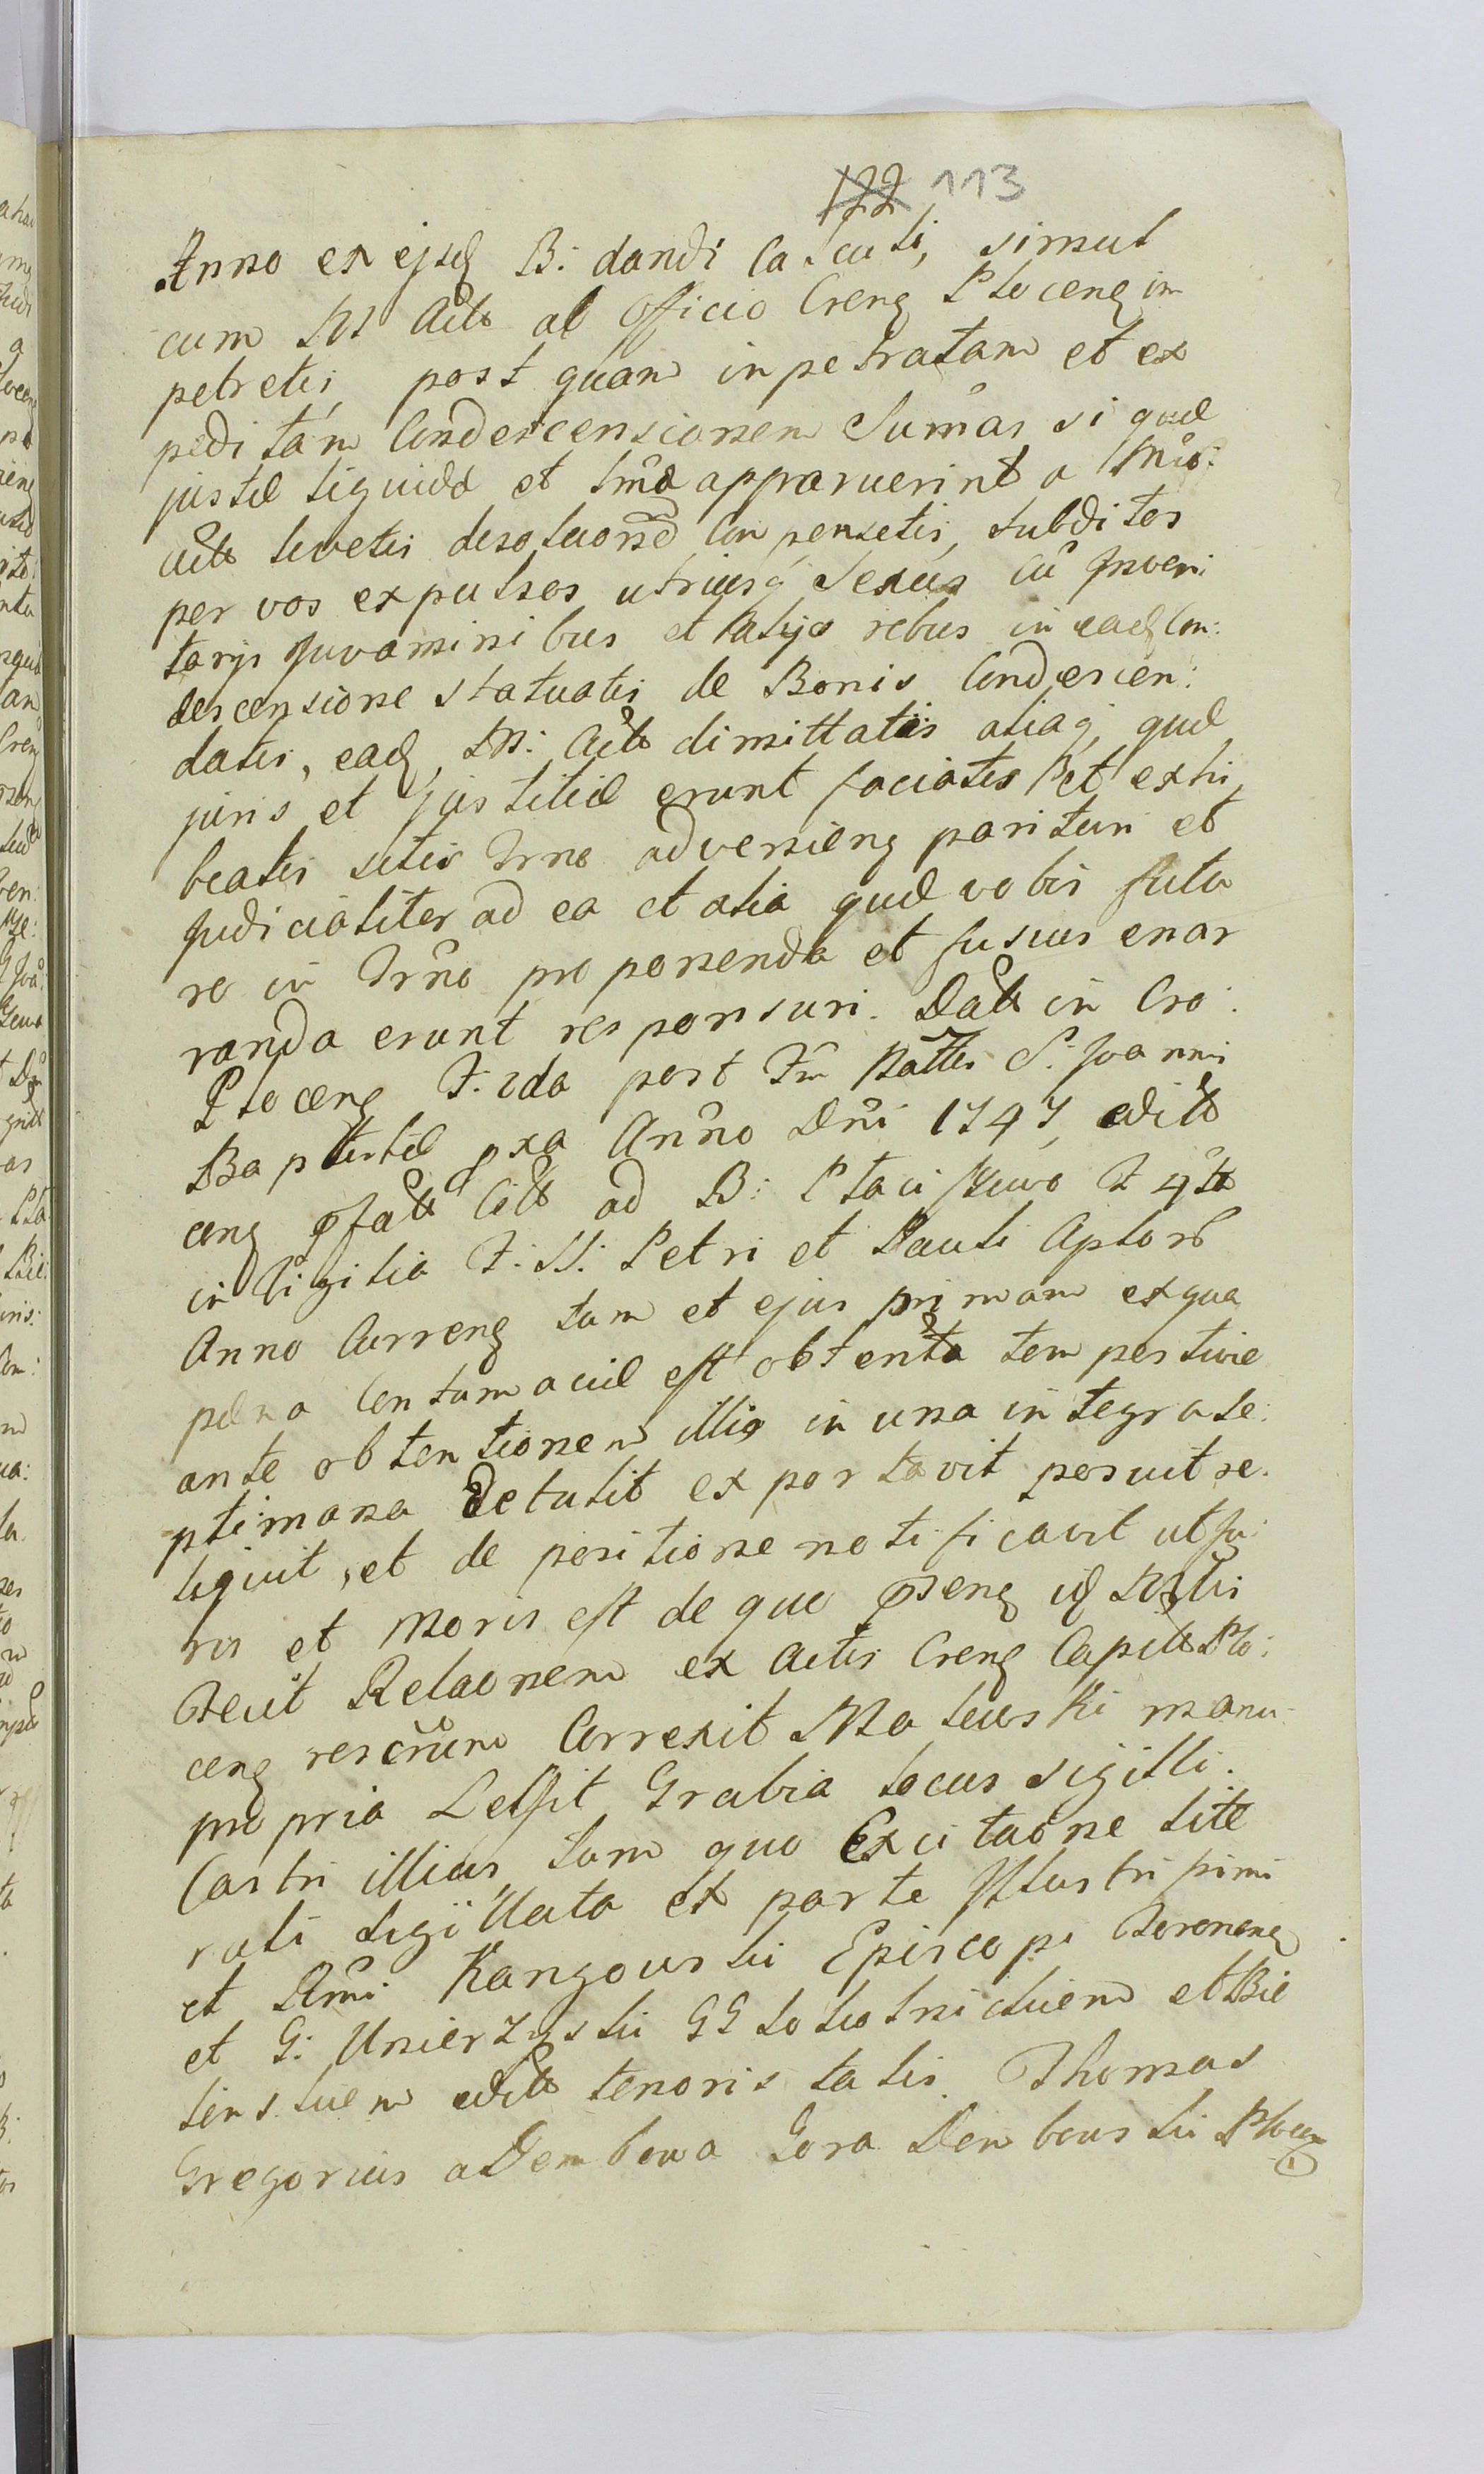 122 113
Anno ex ejsd B: dandi Calculi, simul
cum M Actt ab Officio Crens Plocens im
petretis, post quam inpetratam et ex
peditam Condescensionem Sumas si quæ
justæ liquidæ et apparuerint a
Actt levetis desoluone Conpensetis, subditos
per vos expulsos utriusq Sexus cu Inven
tarijs Juvaminibus et alijs rebus in ead Con:
descensione statuatis de Bonis Condescen:
datis, ead, M: Actt dimittatis aliaq quæ
juris et Justitiæ erunt faciatis et exhi
beatis sitis Trno adversiens parituri et
Judicialiter ad ea et alia quæ vobis futu
ro in Trno proponenda et fusius enar
randa erunt responsuri. Datt in Cro:
Plocens F. 2da post Fm Nattis S. Joannis
Baptistæ pxa Anno Dni 1747, editt
cens pfatt Citt ad B: Placiszewo F 4tt
in Vigilia F. SS. Petri et Pauli Aplorb
Anno Currens tam et ejus primam ex qua
pæna Contumaciæ est obtenta tempestivie
ante obtentionem illig in una integra se:
ptimana detulit exportavit posuit re:
liquit, et de positione notificavit ut ju:
ris et moris est de quo psens id Mstis
fecit Relaonem ex Actis Crens Capittt Plo:
cens rescrum Correxit Malewski manu
propria Lessit Grabia Locus Sigilli.
Castri illius tam quo Excitaone lite
rali Sigillata ex parte Illustrissimi
et Rmi Rangowski Episcopi
et G: Unierzyski GG
editt tenoris talis. Thomas
Gregorius a Dembowa Gora Dembowski Plocen